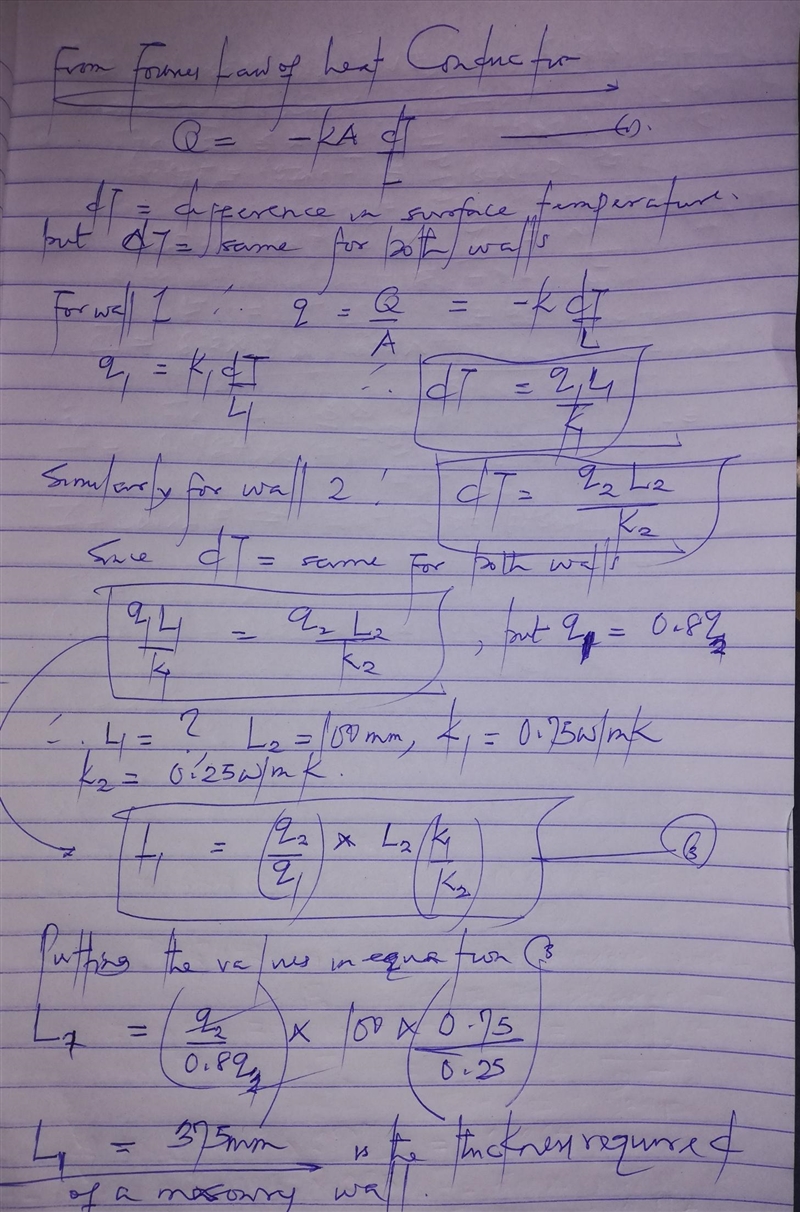 From Fouries Law of heat Conduction
Q = -kA dT/L — (1).
dT = difference in surface temperature.
but dT = same for both walls
For wall 1 ∴ q = Q/A = -k dT/L
q₁ = K₁ dT/L₁ ∴ dT = q₁L₁/K₁
Similarly for wall 2 : dT = q₂ L₂/K₂
Since dT = same for both walls
q₁L₁/K₁ = q₂ L₂/K₂ , but q₁ = 0.8q₂
∴ L₁ = ? L₂ = 100mm, k₁ = 0.75w/mK
K₂ = 0.25w/mK.
L₁ = (q₂/q₁) × L₂ (K₁/K₂) — (3)
Putting the values in equation (3)
L₁ = (q₂/0.8q₂) × 100 × (0.75/0.25)
L₁ = 375mm is the thickness required
of a masonry wall.